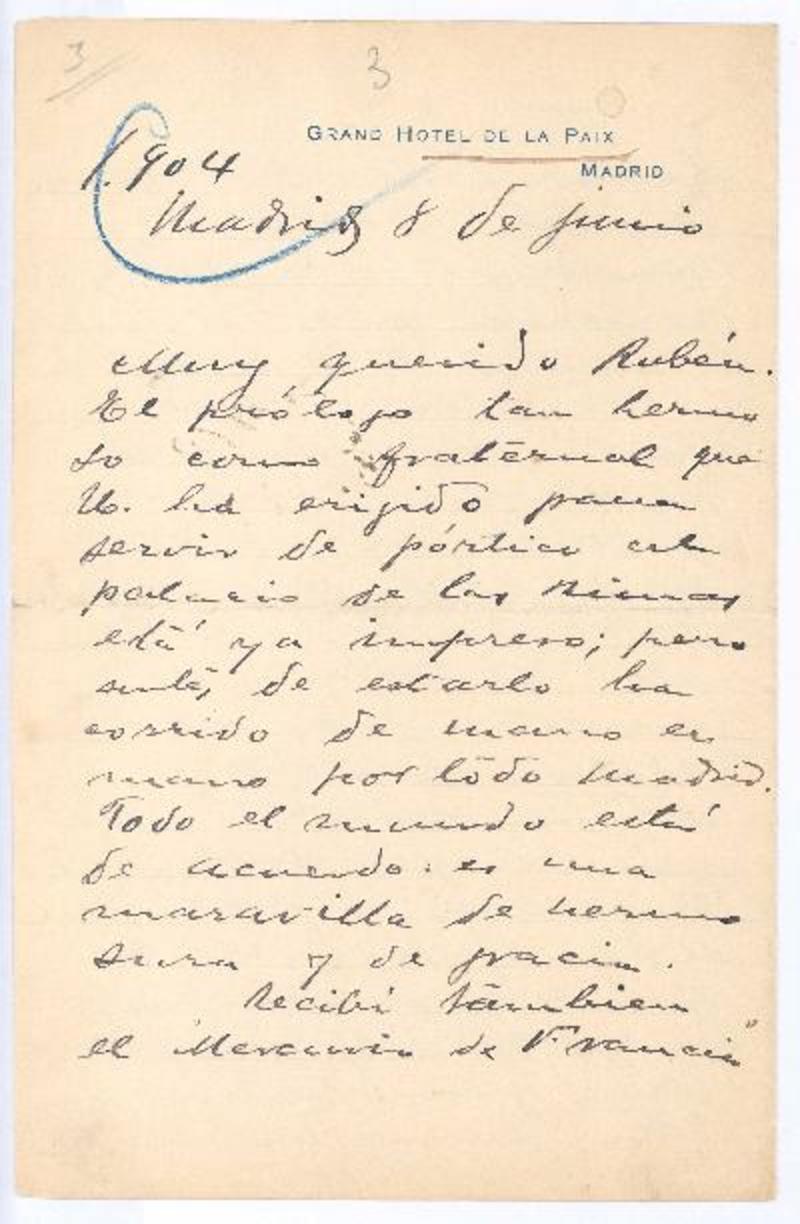 3
3
GRAND HOTEL DE LA PAIX
MADRID
1.904
Madrid 8 de junio
Muy querido Rubén.
El prólogo tan hermo
so como fraternal que
U. ha erijido para
servir de pórtico al
palacio de las Rimas
está ya impreso; pero
antes de estarlo ha
corrido de mano en
mano por todo Madrid.
Todo el mundo está
de acuerdo: es una
maravilla de hermo
sura y de gracia.
Recibí tambien
el Mercurio de Francia"